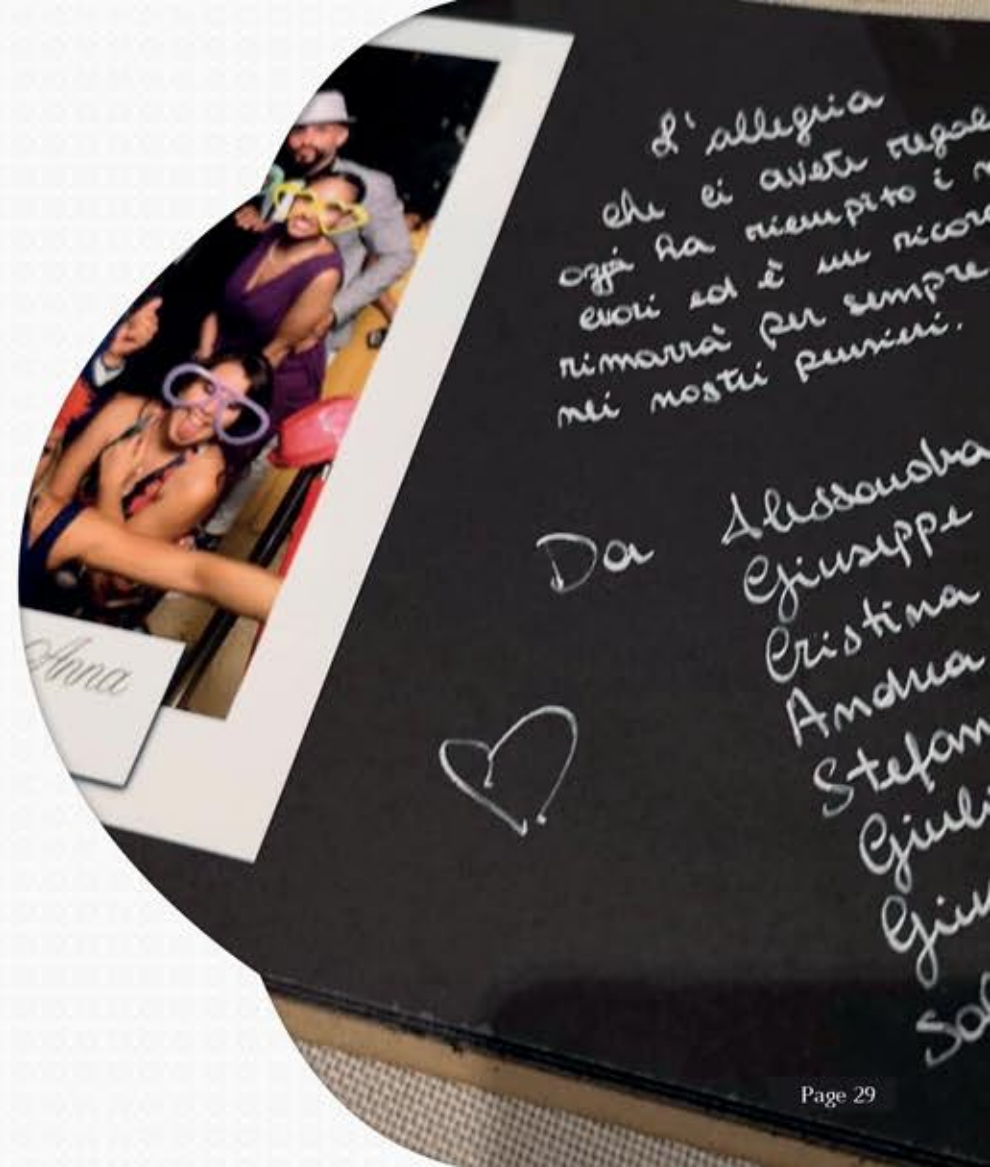 L'allegria
che ci avete regal
oggi ha riempito i n
cuori ed è un ricor
rimarrà per sempre
nei nostri pensieri.
Da Alessandra
Giuseppe
Cristina
Andrea
Stefan
Giuli
Giu
Sal
Anna
Page 29